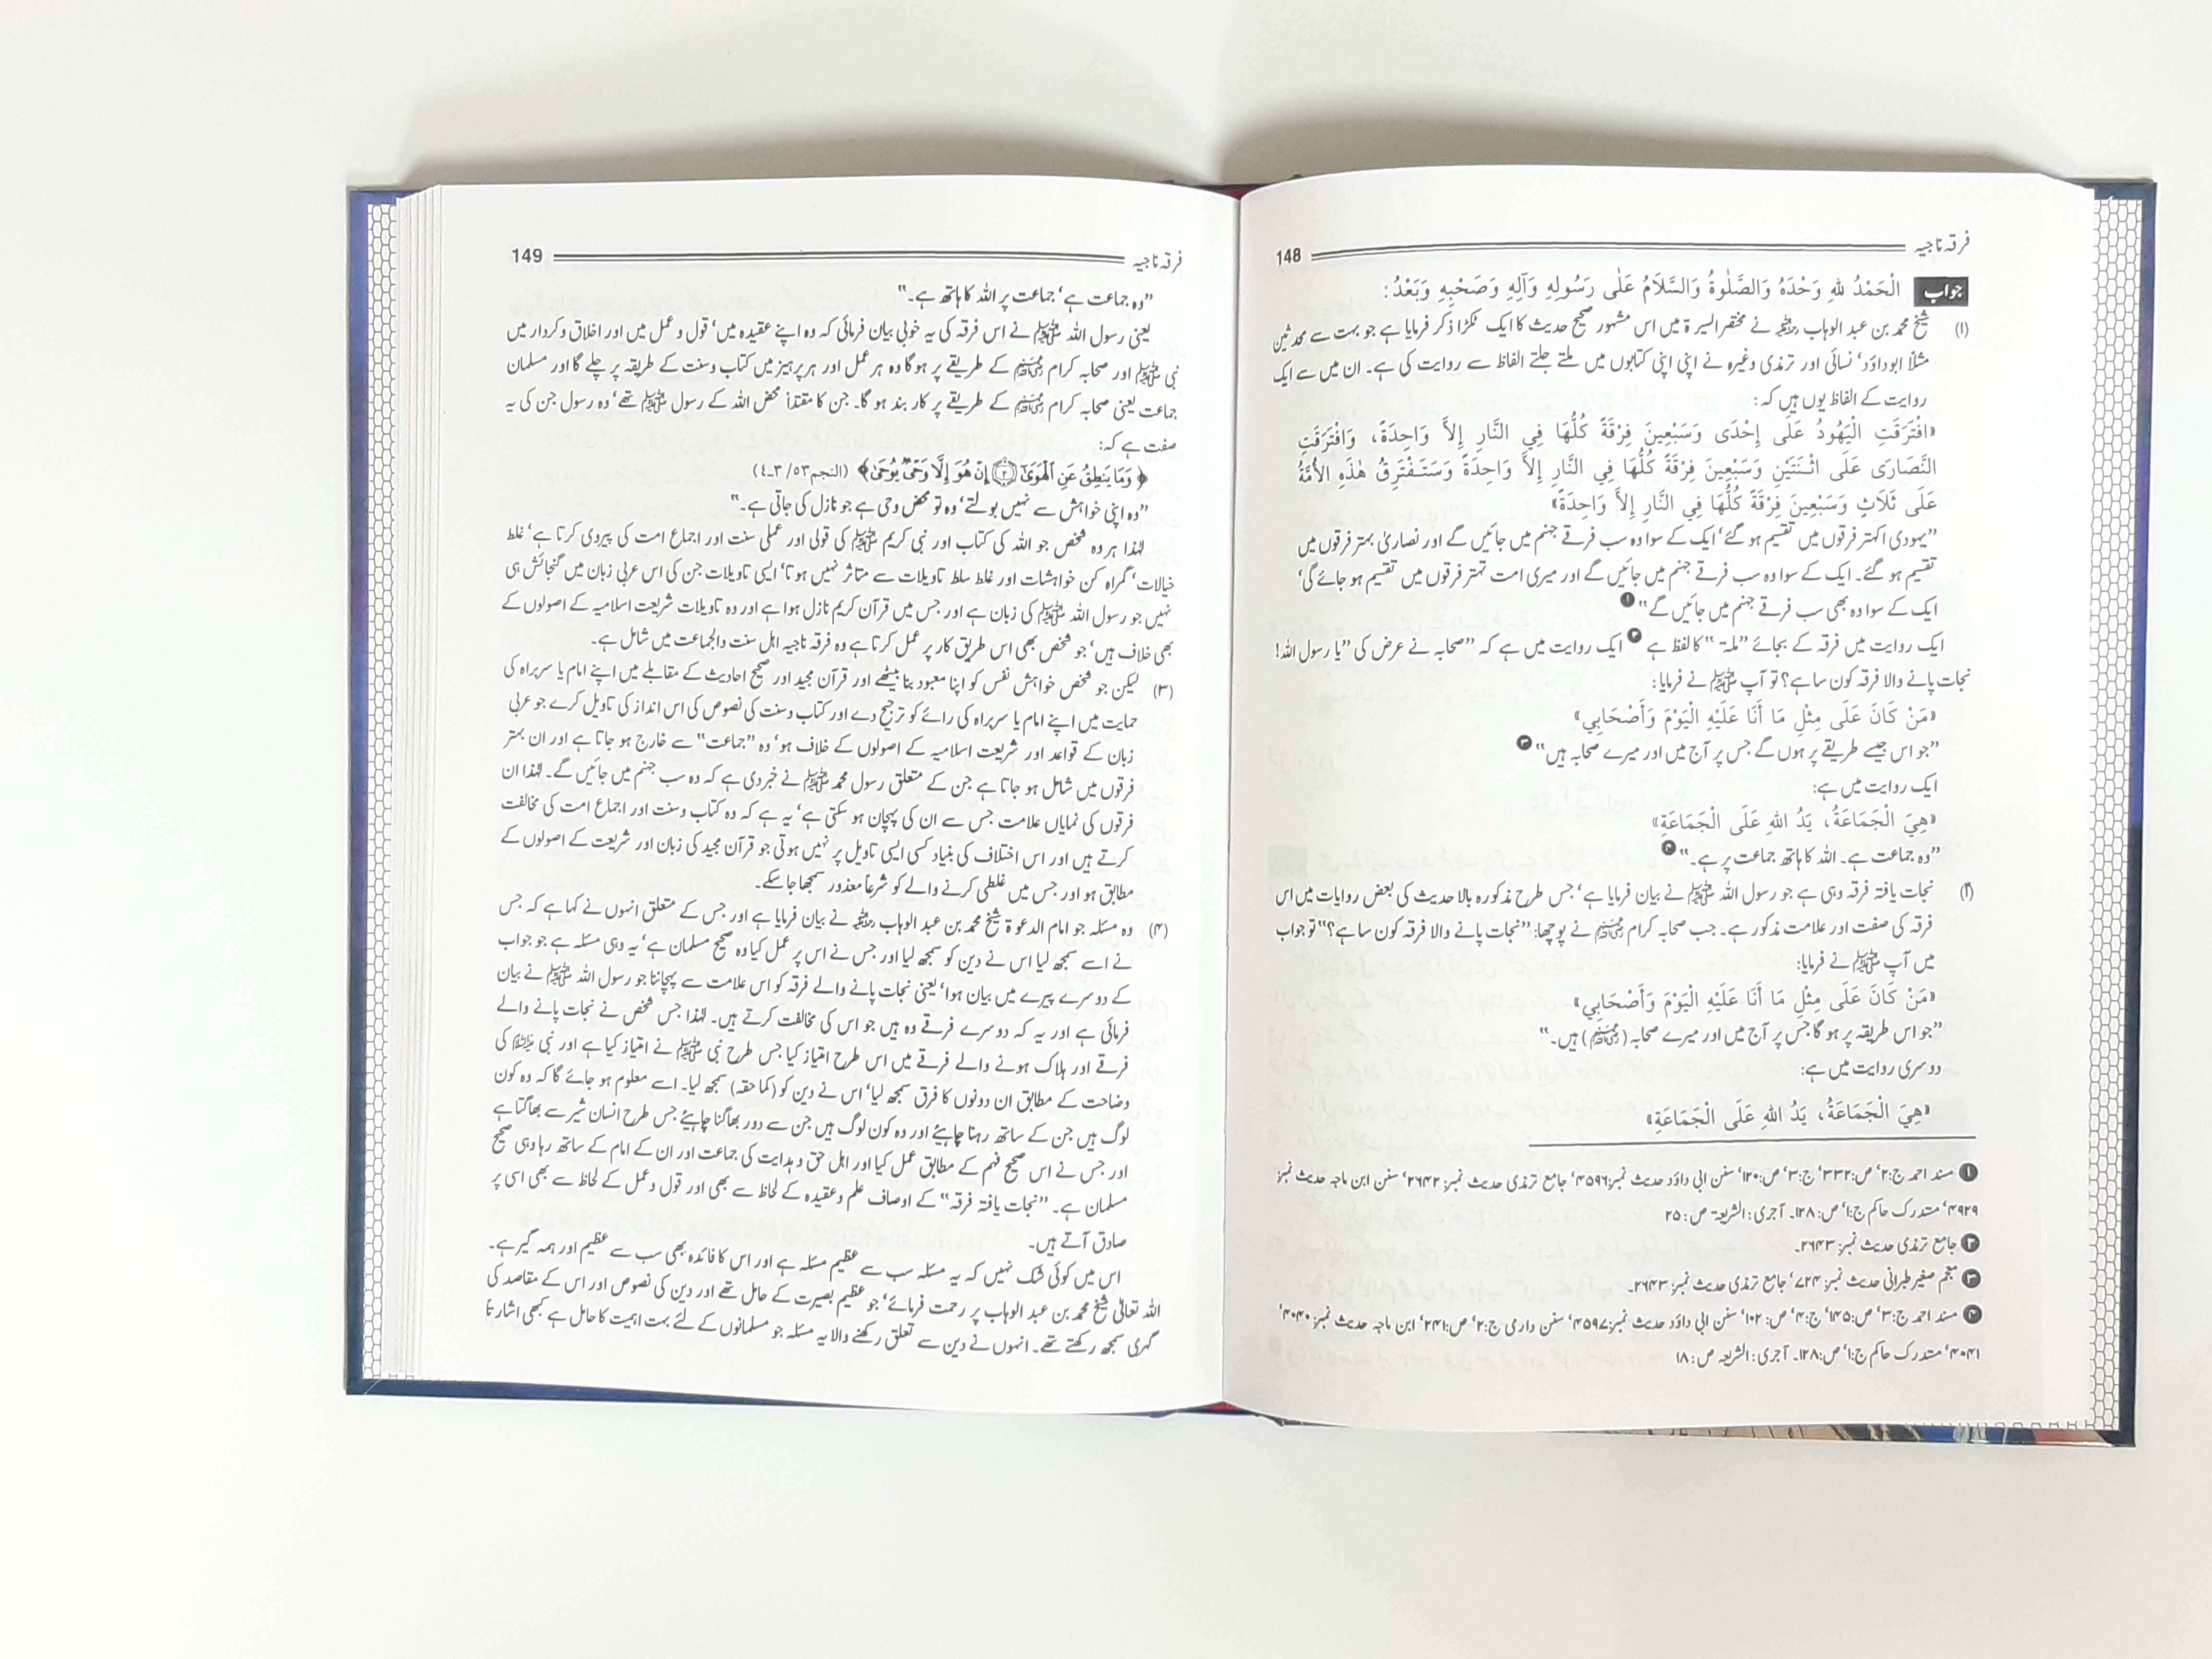 فرقہ ناجیہ 148
جواب الْحَمْدُ لِلّٰهِ وَحْدَهُ وَالصَّلٰوةُ وَالسَّلَامُ عَلٰى رَسُولِهِ وَآلِهِ وَصَحْبِهِ وَبَعْدُ:
(۱) شیخ محمد بن عبد الوہاب رحمۃ اللہ علیہ نے مختصر السیرۃ میں اس مشہور صحیح حدیث کا ایک ٹکڑا ذکر فرمایا ہے جو بہت سے محدثین
مثلاً ابوداؤد‘ نسائی اور ترمذی وغیرہ نے اپنی اپنی کتابوں میں ملتے جلتے الفاظ سے روایت کی ہے۔ ان میں سے ایک
روایت کے الفاظ یوں ہیں کہ:
«افْتَرَقَتِ الْيَهُودُ عَلَى إِحْدَى وَسَبْعِينَ فِرْقَةً كُلُّهَا فِي النَّارِ إِلاَّ وَاحِدَةً، وَافْتَرَقَتِ
النَّصَارَى عَلَى اثْنَتَيْنِ وَسَبْعِينَ فِرْقَةً كُلُّهَا فِي النَّارِ إِلاَّ وَاحِدَةً وَسَتَفْتَرِقُ هٰذِهِ الأُمَّةُ
عَلَى ثَلَاثٍ وَسَبْعِينَ فِرْقَةً كُلُّهَا فِي النَّارِ إِلاَّ وَاحِدَةً»
”یہودی اکہتر فرقوں میں تقسیم ہو گئے‘ ایک کے سوا وہ سب فرقے جہنم میں جائیں گے اور نصاریٰ بہتر فرقوں میں
تقسیم ہو گئے۔ ایک کے سوا وہ سب فرقے جہنم میں جائیں گے اور میری امت تہتر فرقوں میں تقسیم ہو جائے گی‘
ایک کے سوا وہ بھی سب فرقے جہنم میں جائیں گے“ ❶
ایک روایت میں فرقہ کے بجائے ”ملۃ“ کا لفظ ہے ❷ ایک روایت میں ہے کہ ”صحابہ نے عرض کی ”یا رسول اللہ!
نجات پانے والا فرقہ کون سا ہے؟ تو آپ ﷺ نے فرمایا:
«مَنْ كَانَ عَلَى مِثْلِ مَا أَنَا عَلَيْهِ الْيَوْمَ وَأَصْحَابِي»
”جو اس جیسے طریقے پر ہوں گے جس پر آج میں اور میرے صحابہ ہیں“ ❸
ایک روایت میں ہے:
«هِيَ الْجَمَاعَةُ، يَدُ اللهِ عَلَى الْجَمَاعَةِ»
”وہ جماعت ہے۔ اللہ کا ہاتھ جماعت پر ہے۔“ ❹
(۲) نجات یافتہ فرقہ وہی ہے جو رسول اللہ ﷺ نے بیان فرمایا ہے‘ جس طرح مذکورہ بالا حدیث کی بعض روایات میں اس
فرقہ کی صفت اور علامت مذکور ہے۔ جب صحابہ کرام رضی اللہ عنہم نے پوچھا: ”نجات پانے والا فرقہ کون سا ہے؟“ تو جواب
میں آپ ﷺ نے فرمایا:
«مَنْ كَانَ عَلَى مِثْلِ مَا أَنَا عَلَيْهِ الْيَوْمَ وَأَصْحَابِي»
”جو اس طریقہ پر ہو گا جس پر آج میں اور میرے صحابہ (رضی اللہ عنہم) ہیں۔“
دوسری روایت میں ہے:
«هِيَ الْجَمَاعَةُ، يَدُ اللهِ عَلَى الْجَمَاعَةِ»
❶ مسند احمد ج:۲‘ ص:۳۳۲‘ ج:۳‘ ص:۱۲۰‘ سنن ابی داؤد حدیث نمبر:۴۵۹۶‘ جامع ترمذی حدیث نمبر:۲۶۴۲‘ سنن ابن ماجہ حدیث نمبر:
۴۹۲۹‘ مستدرک حاکم ج:۱‘ ص:۱۲۸۔ آجری: الشریعۃ ص:۲۵
❷ جامع ترمذی حدیث نمبر:۲۶۴۳۔
❸ معجم صغیر طبرانی حدیث نمبر:۷۲۴‘ جامع ترمذی حدیث نمبر:۲۶۴۳۔
❹ مسند احمد ج:۳‘ ص:۱۴۵‘ ج:۴‘ ص:۱۰۲‘ سنن ابی داؤد حدیث نمبر:۴۵۹۷‘ سنن دارمی ج:۲‘ ص:۲۴۱‘ ابن ماجہ حدیث نمبر:۴۰۴۰‘
۴۰۴۱‘ مستدرک حاکم ج:۱‘ ص:۱۲۸۔ آجری: الشریعہ ص:۱۸
فرقہ ناجیہ 149
”وہ جماعت ہے‘ جماعت پر اللہ کا ہاتھ ہے۔“
یعنی رسول اللہ ﷺ نے اس فرقہ کی یہ خوبی بیان فرمائی کہ وہ اپنے عقیدہ میں‘ قول و عمل میں اور اخلاق و کردار میں
نبی ﷺ اور صحابہ کرام رضی اللہ عنہم کے طریقے پر ہو گا وہ ہر عمل اور ہر پرہیز میں کتاب و سنت کے طریقہ پر چلے گا اور مسلمان
جماعت یعنی صحابہ کرام رضی اللہ عنہم کے طریقے پر کار بند ہو گا۔ جن کا مقتدا محض اللہ کے رسول ﷺ تھے‘ وہ رسول جن کی یہ
صفت ہے کہ:
﴿وَمَا يَنطِقُ عَنِ ٱلْهَوَىٰٓ ۝٣ إِنْ هُوَ إِلَّا وَحْىٌ يُوحَىٰ﴾ (النجم۵۳/ ۳۔۴)
”وہ اپنی خواہش سے نہیں بولتے‘ وہ تو محض وحی ہے جو نازل کی جاتی ہے۔“
لہٰذا ہر وہ شخص جو اللہ کی کتاب اور نبی کریم ﷺ کی قولی اور عملی سنت اور اجماع امت کی پیروی کرتا ہے‘ غلط
خیالات‘ گمراہ کن خواہشات اور غلط سلط تاویلات سے متاثر نہیں ہوتا‘ ایسی تاویلات جن کی اس عربی زبان میں گنجائش ہی
نہیں جو رسول اللہ ﷺ کی زبان ہے اور جس میں قرآن کریم نازل ہوا ہے اور وہ تاویلات شریعت اسلامیہ کے اصولوں کے
بھی خلاف ہیں‘ جو شخص بھی اس طریق کار پر عمل کرتا ہے وہ فرقہ ناجیہ اہل سنت والجماعت میں شامل ہے۔
(۳) لیکن جو شخص خواہش نفس کو اپنا معبود بنا بیٹھے اور قرآن مجید اور صحیح احادیث کے مقابلے میں اپنے امام یا سربراہ کی
حمایت میں اپنے امام یا سربراہ کی رائے کو ترجیح دے اور کتاب و سنت کی نصوص کی اس انداز کی تاویل کرے جو عربی
زبان کے قواعد اور شریعت اسلامیہ کے اصولوں کے خلاف ہو‘ وہ ”جماعت“ سے خارج ہو جاتا ہے اور ان بہتر
فرقوں میں شامل ہو جاتا ہے جن کے متعلق رسول محمد ﷺ نے خبر دی ہے کہ وہ سب جہنم میں جائیں گے۔ لہٰذا ان
فرقوں کی نمایاں علامت جس سے ان کی پہچان ہو سکتی ہے‘ یہ ہے کہ وہ کتاب و سنت اور اجماع امت کی مخالفت
کرتے ہیں اور اس اختلاف کی بنیاد کسی ایسی تاویل پر نہیں ہوتی جو قرآن مجید کی زبان اور شریعت کے اصولوں کے
مطابق ہو اور جس میں غلطی کرنے والے کو شرعاً معذور سمجھا جا سکے۔
(۴) وہ مسئلہ جو امام الدعوۃ شیخ محمد بن عبد الوہاب رحمۃ اللہ علیہ نے بیان فرمایا ہے اور جس کے متعلق انہوں نے کہا ہے کہ جس
نے اسے سمجھ لیا اس نے دین کو سمجھ لیا اور جس نے اس پر عمل کیا وہ صحیح مسلمان ہے‘ یہ وہی مسئلہ ہے جو جواب
کے دوسرے پیرے میں بیان ہوا‘ یعنی نجات پانے والے فرقہ کو اس علامت سے پہچاننا جو رسول اللہ ﷺ نے بیان
فرمائی ہے اور یہ کہ دوسرے فرقے وہ ہیں جو اس کی مخالفت کرتے ہیں۔ لہٰذا جس شخص نے نجات پانے والے
فرقے اور ہلاک ہونے والے فرقے میں اس طرح امتیاز کیا جس طرح نبی ﷺ نے امتیاز کیا ہے اور نبی علیہ السلام کی
وضاحت کے مطابق ان دونوں کا فرق سمجھ لیا‘ اس نے دین کو (کما حقہ) سمجھ لیا۔ اسے معلوم ہو جائے گا کہ وہ کون
لوگ ہیں جن کے ساتھ رہنا چاہئے اور وہ کون لوگ ہیں جن سے دور بھاگنا چاہئے جس طرح انسان شیر سے بھاگتا ہے
اور جس نے اس صحیح فہم کے مطابق عمل کیا اور اہل حق و ہدایت کی جماعت اور ان کے امام کے ساتھ رہا وہی صحیح
مسلمان ہے۔ ”نجات یافتہ فرقہ“ کے اوصاف علم و عقیدہ کے لحاظ سے بھی اور قول و عمل کے لحاظ سے بھی اسی پر
صادق آتے ہیں۔
اس میں کوئی شک نہیں کہ یہ مسئلہ سب سے عظیم مسئلہ ہے اور اس کا فائدہ بھی سب سے عظیم اور ہمہ گیر ہے۔
اللہ تعالیٰ شیخ محمد بن عبد الوہاب پر رحمت فرمائے‘ جو عظیم بصیرت کے حامل تھے اور دین کی نصوص اور اس کے مقاصد کی
گہری سمجھ رکھتے تھے۔ انہوں نے دین سے تعلق رکھنے والا یہ مسئلہ جو مسلمانوں کے لئے بہت اہمیت کا حامل ہے کبھی اشارتاً